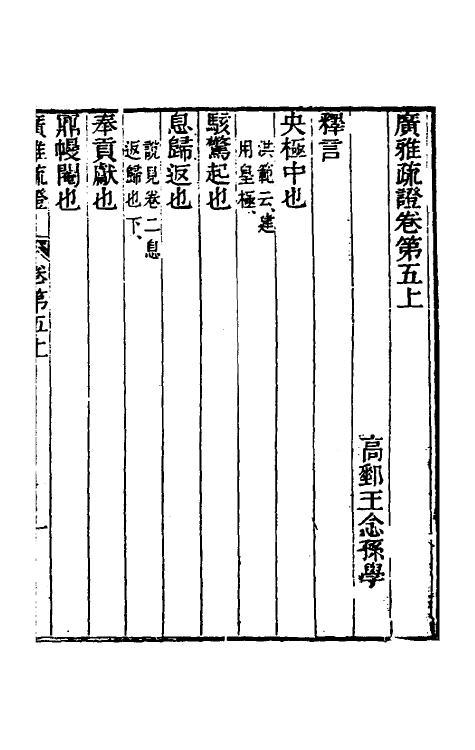 廣雅疏證卷第五上
高郵王念孫學
釋言
央極中也
洪範云、建
用皇極、
駭驚起也
息歸返也
說見卷二息
返歸也下、
奉貢獻也
鼎幔閹也
廣雅疏證
卷第五上
一